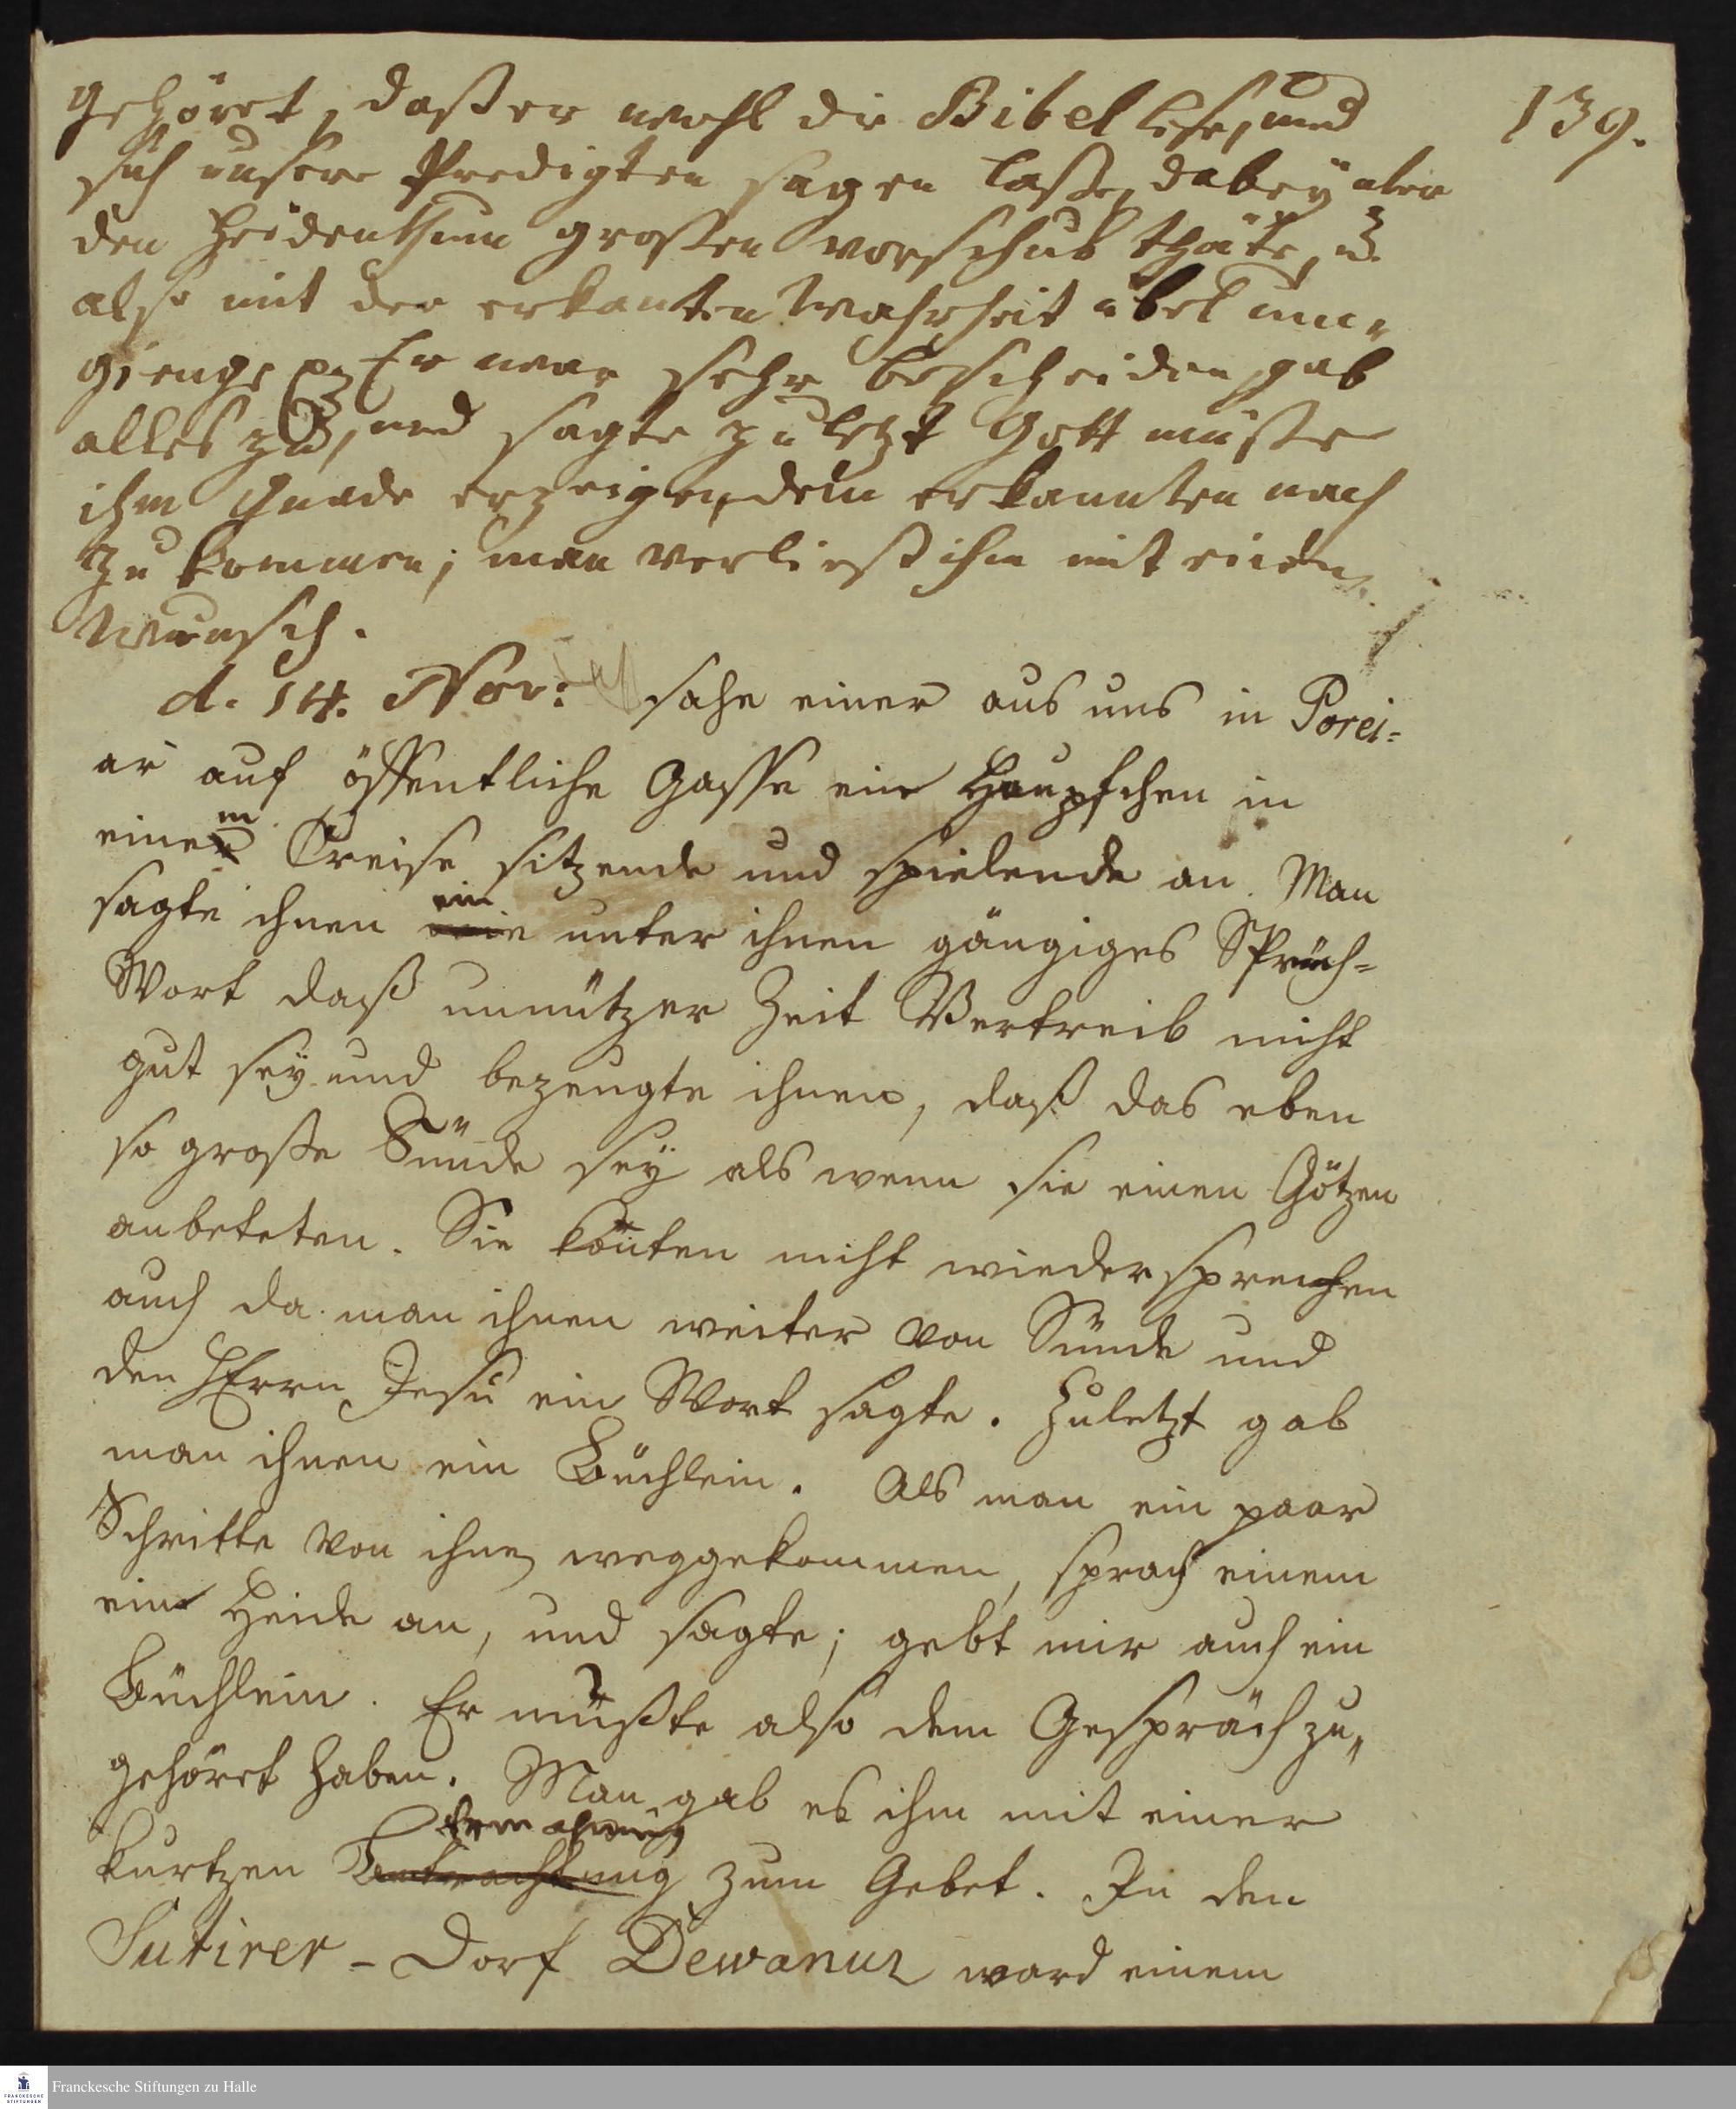 139.
gehöret, daß er wohl die Bibel lese, und
sich unsere Predigten sagen laße, dabey aber
den Heidenthum großen vorschub thäte, u.
also mit der erkanten Wahrheit übel um-
gienge Er war sehr bescheiden, gab
alles zu, und sagte zuletzt Gott müste
ihm Gnade erzeigen, dem erkannten nach
zu kommen; man verließ ihn mit einem
Wunsch.
d. 14. Nov: sahe einer aus uns in Porei-
ar auf öffentliche Gasse ein Häupfchen in
einem Creise sitzende und spielende an. Man
sagte ihnen ein unter ihnen gängiges Sprüch-
Wort daß unnützer Zeit Vertreib nicht
gut sey und bezeugte ihnen, daß das eben
so große Sünde sey als wenn sie einen Götzen
anbeteten. Sie konten nicht wiedersprechen
auch da man ihnen weiter von Sünde und
den HErrn Jesu ein Wort sagte. Zuletzt gab
man ihnen ein Büchlein. Als man ein paar
Schritte von ihnen weggekommen, sprach einem
ein Heide an, und sagte; gebt mir auch ein
Büchlein. Er müste also dem Gespräch zu-
gehöret haben. Man gab es ihm mit einer
Ermahnung
kurtzen Betrachtung zum Gebet. In den
Sutirer-Dorf Dewanur ward einem
Franckesche Stiftungen zu Halle